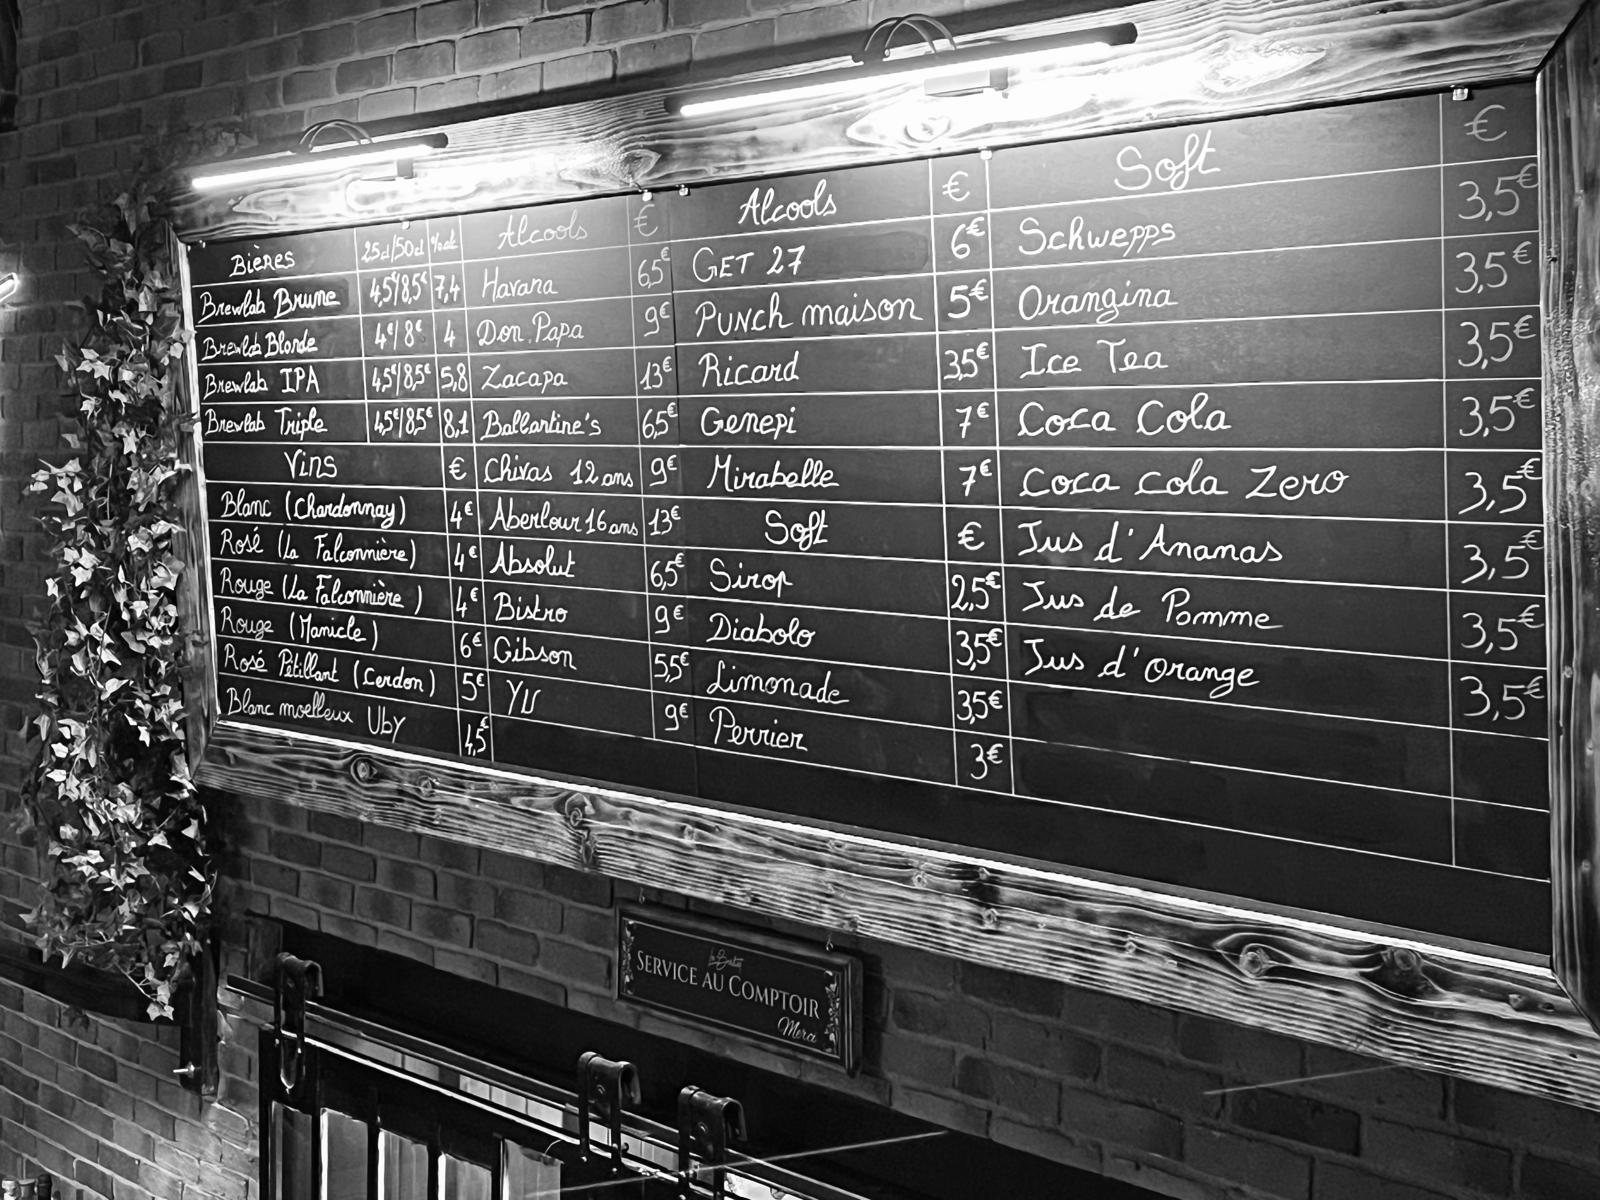 Bières 25cl/50cl %alc
Brewlab Brune 4,5€/8,5€ 7,4
Brewlab Blonde 4€/8€ 4
Brewlab IPA 4,5€/8,5€ 5,8
Brewlab Triple 4,5€/8,5€ 8,1
Vins €
Blanc (Chardonnay) 4€
Rosé (La Falconnière) 4€
Rouge (La Falconnière) 4€
Rouge (Manicle) 6€
Rosé Pétillant (Cerdon) 5€
Blanc moelleux Uby 4,5€
Alcools €
Havana 6,5€
Don Papa 9€
Zacapa 13€
Ballantine's 6,5€
Chivas 12 ans 9€
Aberlour 16 ans 13€
Absolut 6,5€
Bistro 9€
Gibson 5,5€
YU 9€
Alcools €
GET 27 6€
PUNCh maison 5€
Ricard 3,5€
Genepi 7€
Mirabelle 7€
Soft €
Sirop 2,5€
Diabolo 3,5€
Limonade 3,5€
Perrier 3€
Soft €
Schwepps 3,5€
Orangina 3,5€
Ice Tea 3,5€
Coca Cola 3,5€
Coca cola Zero 3,5€
Jus d'Ananas 3,5€
Jus de Pomme 3,5€
Jus d'Orange 3,5€
SERVICE AU COMPTOIR
Merci